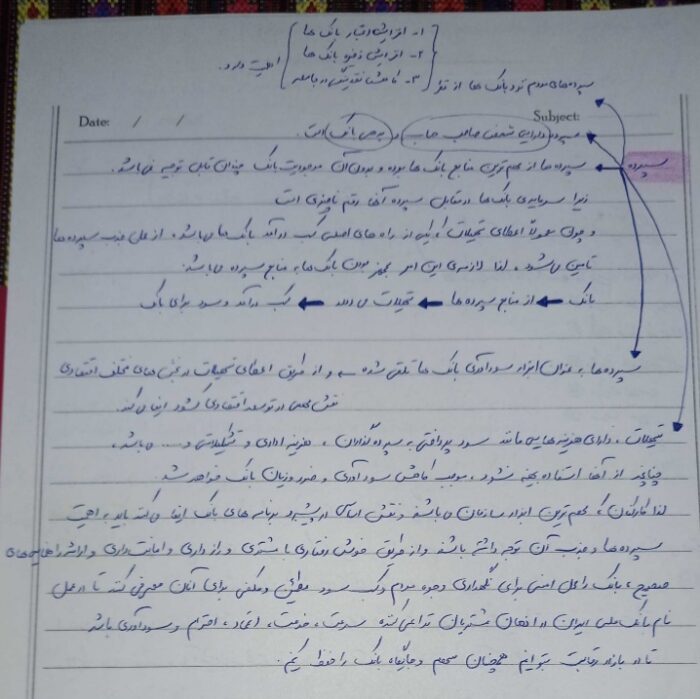 ۱- افزایش اعتبار بانک ها
۲- افزایش ذخیره بانک ها
۳- کاهش نقدینگی در جامعه
سپرده‌های مردم نزد بانک ها از نظر
اهمیت دارد.
Date: / /
Subject:
سپرده دارایی شخص صاحب حساب و بدهی بانک است.
سپرده
سپرده ها از مهم ترین منابع بانک ها بوده و بدون آن موجودیت بانک چندان قابل توجیه نمی باشد.
زیرا سرمایه‌ی بانک ها در مقابل سپرده آنها رقم ناچیزی است
و چون معمولاً اعطای تسهیلات که یکی از راه های اصلی کسب درآمد بانک ها می باشد، از محل جذب سپرده ها
تامین می شود، لذا لازمه‌ی این امر مجهز بودن بانک ها به منابع سپرده می باشد.
بانک ← از منابع سپرده ها ← تسهیلات می دهد ← کسب درآمد و سود برای بانک
سپرده ها به عنوان ابزار سودآوری بانک ها تلقی شده و از طریق اعطای تسهیلات در بخش های مختلف اقتصادی
نقش مهمی در توسعه اقتصادی کشور ایفا می کند.
تسهیلات، دارای هزینه هایی مانند سود پرداختی به سپرده گذاران، هزینه اداری و تشکیلاتی و ... می باشد،
چنانچه از آنها استفاده بهینه نشود، موجب کاهش سودآوری و ضرر و زیان بانک خواهد شد.
لذا کارکنان که مهم ترین ابزار سازمان می باشند و نقش اساسی در پیشبرد برنامه های بانک ایفا می کنند باید به اهمیت
سپرده ها و جذب آن توجه داشته باشند و از طریق خوش رفتاری با مشتری و رازداری و امانت داری و ارائه راهنمایی های
صحیح، بانک را محل امنی برای نگهداری وجوه مردم و کسب سود مطمئن و مکفی برای آنان معرفی کنند تا در عمل
نام بانک ملی ایران در اذهان مشتریان تداعی کننده سرعت، خدمت، اعتماد، احترام و سودآوری باشد
تا در بازار رقابت بتوانیم همچنان سهم و جایگاه بانک را حفظ کنیم.